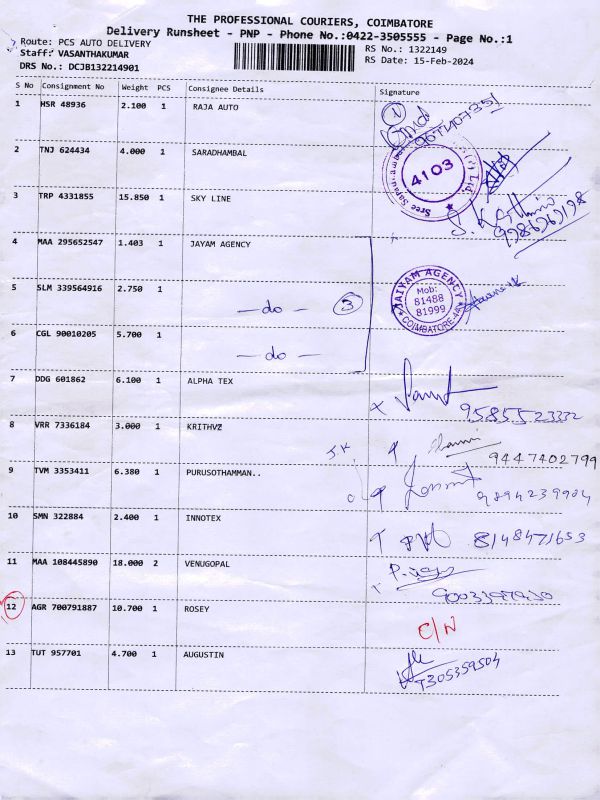 THE PROFESSIONAL COURIERS, COIMBATORE
Delivery Runsheet - PNP - Phone No.:0422-3505555 - Page No.:1
Route: PCS AUTO DELIVERY
RS No.: 1322149
Staff: VASANTHAKUMAR
RS Date: 15-Feb-2024
DRS No.: DCJB132214901
S No Consignment No Weight PCS Consignee Details Signature
1 HSR 48936 2.100 1 RAJA AUTO
1
2 TNJ 624434 4.000 1 SARADHAMBAL
4103
3 TRP 4331855 15.850 1 SKY LINE
4 MAA 295652547 1.403 1 JAYAM AGENCY
JAIYAM AGENCY
Mob:
81488
81999
COIMBATORE-44
5 SLM 339564916 2.750 1
- do - 3
6 CGL 90010205 5.700 1
- do -
7 DDG 601862 6.100 1 ALPHA TEX
9585523332
8 VRR 7336184 3.000 1 KRITHVZ
J.K
9447402799
9 TVM 3353411 6.380 1 PURUSOTHAMMAN..
9894239904
10 SMN 322884 2.400 1 INNOTEX
8148471653
11 MAA 108445890 18.000 2 VENUGOPAL
12 AGR 700791887 10.700 1 ROSEY
C/N
13 TUT 957701 4.700 1 AUGUSTIN
7305359504